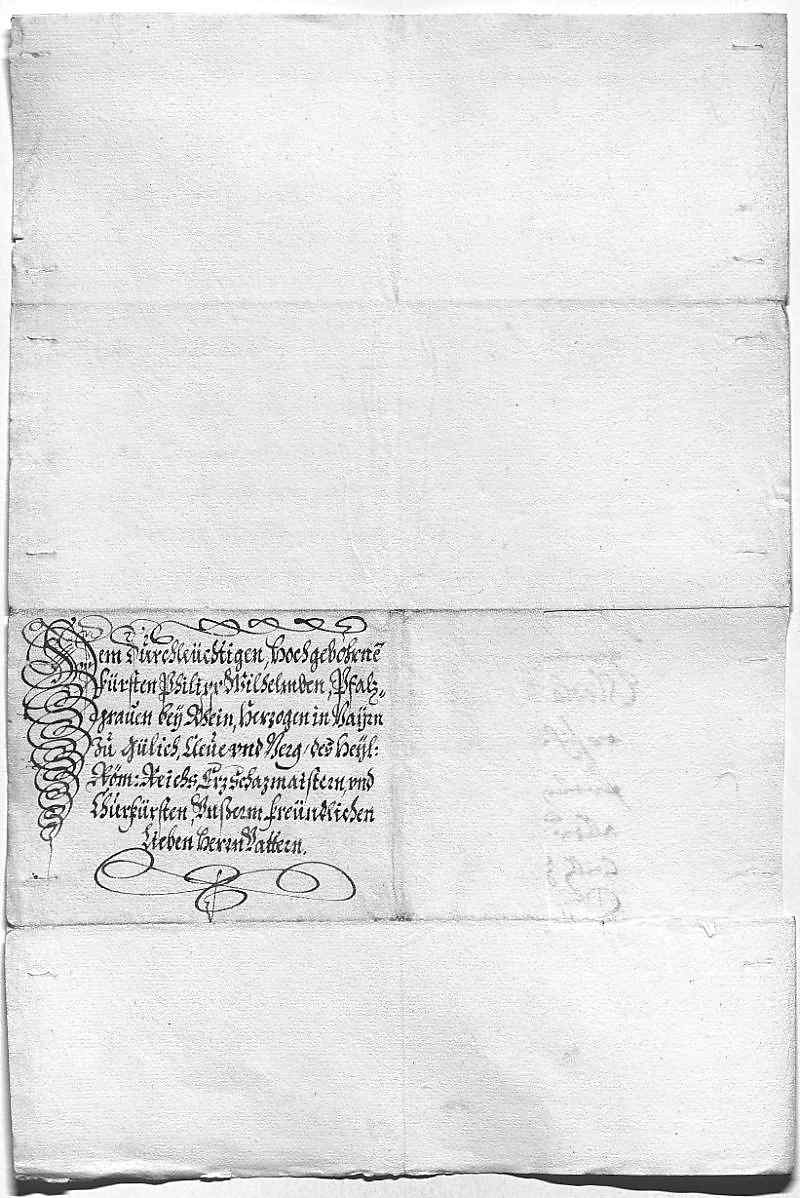 Dem Dürchleüchtigen, Hochgebohrnē
fürsten Philipp Wilhelmben, Pfalz„
grauen beÿ Rhein, Herzogen in Baÿrn
zü Gülich, Cleue vnd Berg, des Heÿl:
Röm: Reichs, Erzschazmaistern, vnd
Chürfürsten, Vnßerm freündlichen
Lieben Herrn Vattern.